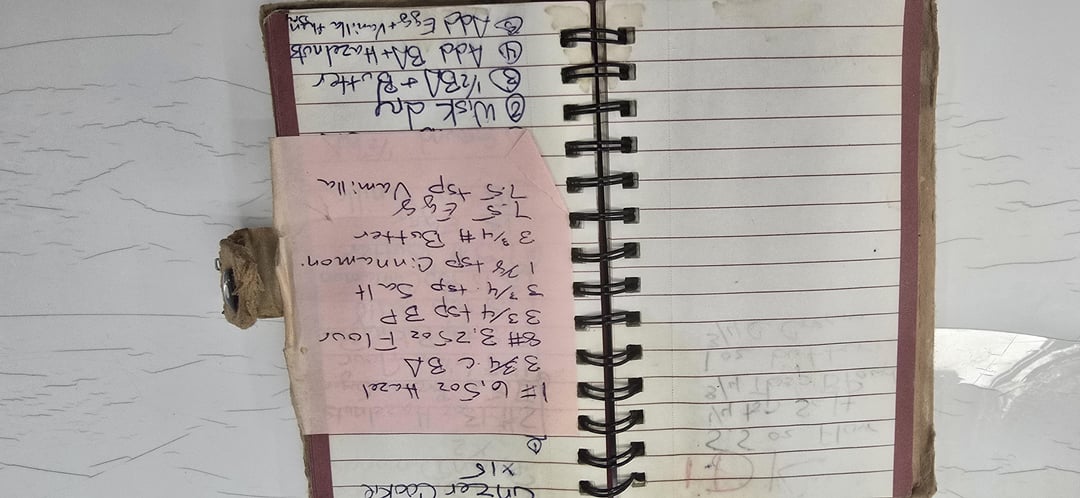 Linzer Cookie
x15
①
1# 6.5oz Hazel
3 3/4 c BA
8# 3.25oz Flour
3 3/4 tsp BP
3 3/4 tsp Salt
1 7/8 tsp Cinnamon
3 3/4 # Butter
7.5 Egg
7.5 tsp Vanilla
② Wisk dry
③ 1/2 BA + Butter
④ Add BA + Hazelnuts
⑤ Add Egg + Vanilla then